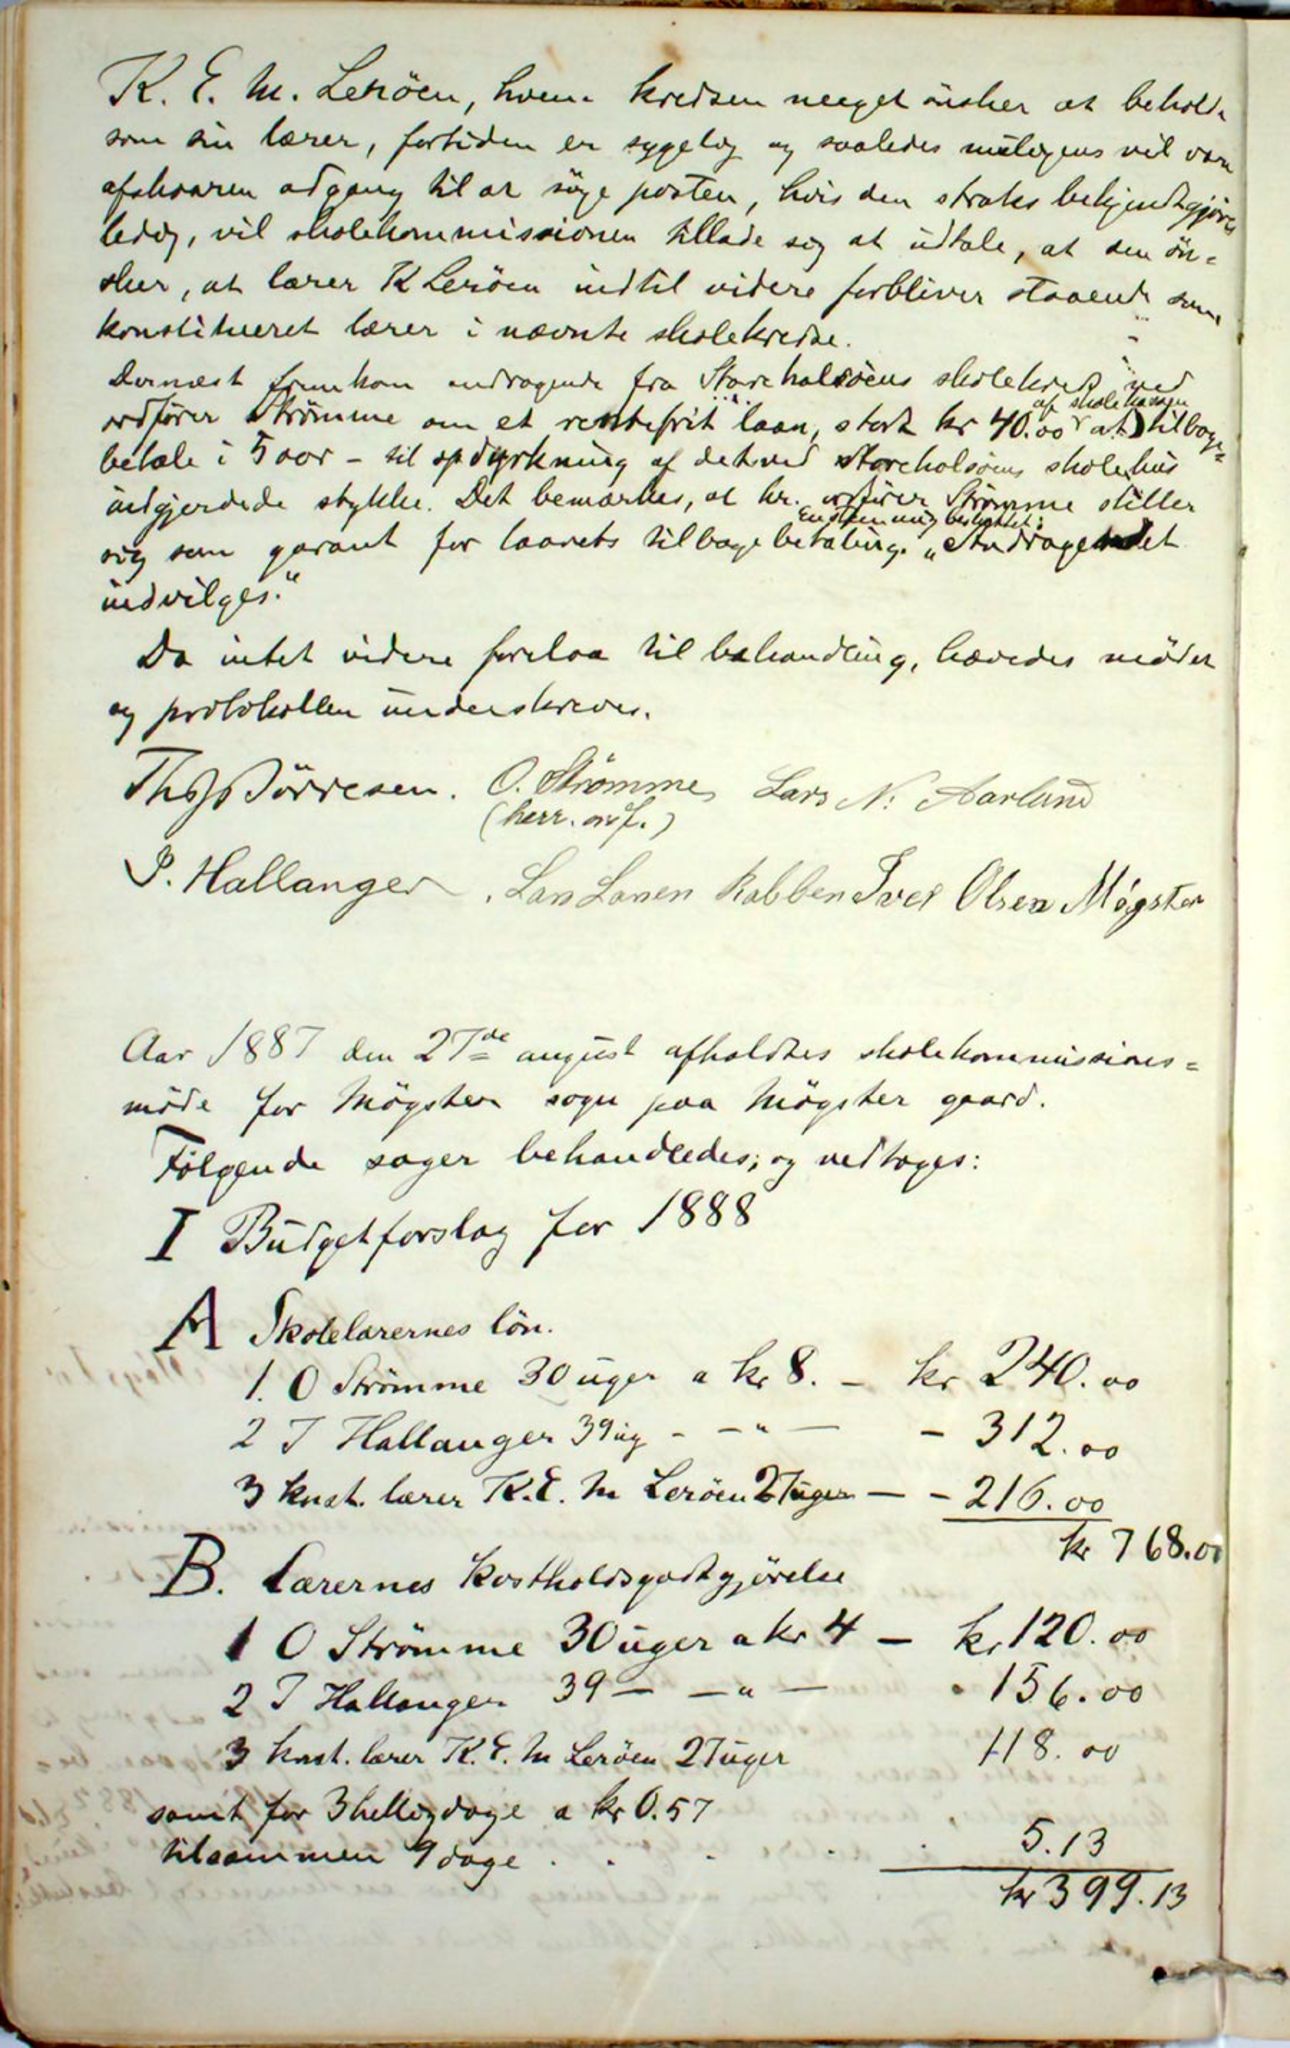 K. E. M. Leröen, hvem kredsen meeget önsker at beholde
som sin lærer, fortiden er sygelig og saaledes muligens vil være
afskaaren adgang til at söge posten, hvis den straks bekjendtgjöres
ledig, vil skolekommissionen tillade sig at udtale, at den ön=
sker, at lærer K Leröen indtil videre forbliver staaende som
konstitueret lærer i nævnte skolekreds.
Dernæst fremkom andragende fra Storekalsöens skolekreds ved
ordförer Strömme om et rentefrit laan, stort kr 40.00 af skolekassen at tilbage=
betale i 5 aar - til opdyrkning af det ved Storekalsöens skolehus
indgjerdede stykke. Det bemærkes, at hr. ordförer Strömme stiller
sig som garant for laanets tilbagebetaling. Enstemmig besluttet: „Andragendet
indvilges."
Da intet videre forelaa til behandling, hævedes mödet
og protokollen underskreves.
Ths Jörresen. O. Strömme Lars N. Aarland
(herr. ordf.)
P. Hallanger, Lars Larsen Rabben Iver Olsen Møgster
Aar 1887 den 27de august afholdtes skolekommissions=
möde for Mögster sogn paa Mögster gaard.
Følgende sager behandledes, og vedtoges:
I Budgetforslag for 1888
A Skolelærernes lön.
1. O Strömme 30 uger a kr 8. — kr 240.00
2 J Hallanger 39 ug - — " — - 312.00
3 konst. lærer K. E. M Leröen 27 uger — - 216.00
kr 768.00
B. Lærernes Kostholdsgodtgjörelse
1 O Strömme 30 uger a kr 4 — kr 120.00
2 J Hallanger 39 — — " — - 156.00
3 konst. lærer K. E. M Leröen 27 uger 118.00
samt for 3 helligdage a kr 0.57
tilsammen 9 dage . . . . . 5.13
kr 399.13